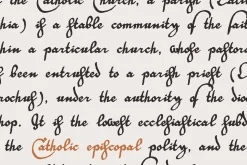 the Catholic Church, a parish (Latin
hia) is a stable community of the faith
hin a particular church, whose pastora
s been entrusted to a parish priest (L
rochus), under the authority of the dio
hop. It is the lowest ecclesiastical subd
the Catholic episcopal polity, and the